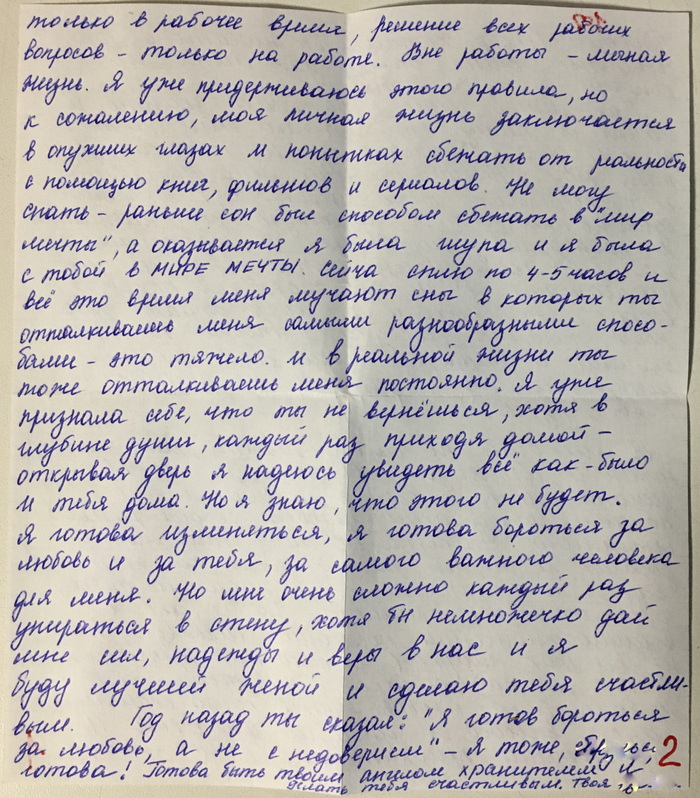 только в рабочее время, решение всех рабочих
вопросов - только на работе. Вне работы - личная
жизнь. Я уже придерживаюсь этого правила, но
к сожалению, моя личная жизнь заключается
в опухших глазах и попытках сбежать от реальности
с помощью книг, фильмов и сериалов. Не могу
спать - раньше сон был способом сбежать в "мир
мечты", а оказывается я была тупа и я была
с тобой в МИРЕ МЕЧТЫ. Сейча сплю по 4-5 часов и
всё это время меня мучают сны в которых ты
отталкиваешь меня самыми разнообразными спосо-
бами - это тяжело. И в реальной жизни ты
тоже отталкиваешь меня постоянно. Я уже
признала себе, что ты не вернёшься, хотя в
глубине души, каждый раз приходя домой -
открывая дверь я надеюсь увидеть всё как-было
и тебя дома. Но я знаю, что этого не будет.
Я готова изменяться, я готова бороться за
любовь и за тебя, за самого важного человека
для меня. Но мне очень сложно каждый раз
упираться в стену, хотя бы немножечко дай
мне сил, надежды и веры в нас и я
буду лучшей женой и сделаю тебя счастли-
вым. Год назад ты сказал: "Я готов бороться
за любовь, а не с недоверием" - Я тоже,
готова! Готова быть твоим ангелом хранителем и 2
делать тебя счастливым. Твоя